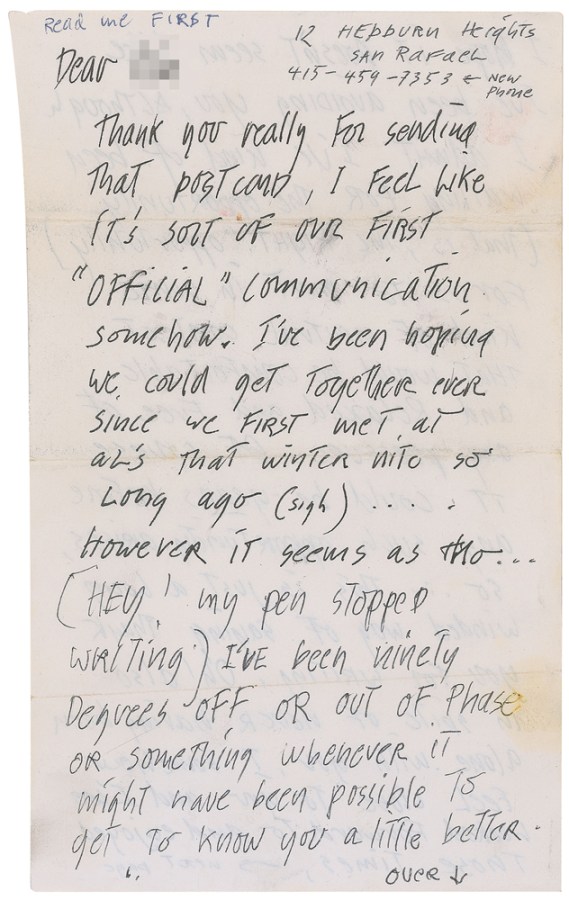 Read me FIRST
12 Hepburn Heights
San Rafael
415-459-7353 ← New Phone
Dear
Thank you really for sending
That postcard, I feel like
it's sort of our first
"OFFICIAL" communication
somehow. I've been hoping
we could get together ever
since we first met at
als that winter nite so
long ago (sigh) .....
However it seems as tho...
(HEY! my pen stopped
writing) I've been ninety
degrees off or out of phase
or something whenever it
might have been possible to
get to know you a little better.
over ↓